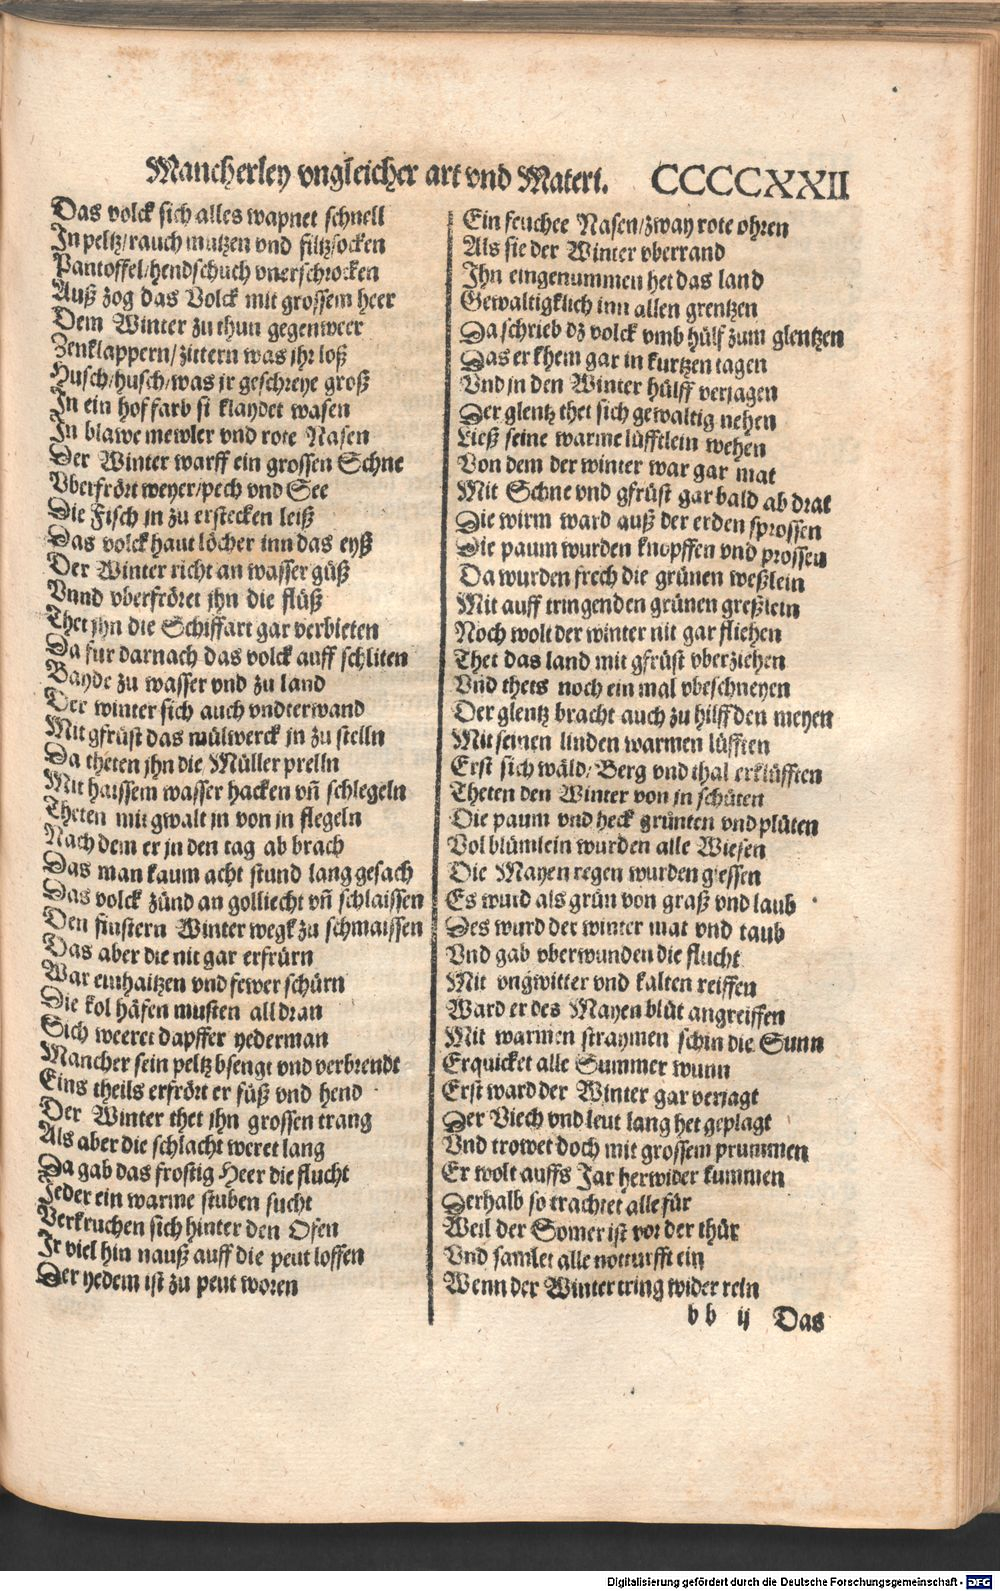 Mancherley vngleicher art vnd Materi. CCCCXXII
Das volck sich alles wapnet schnell
Jn peltz/rauch mutzen vnd filtzsocken
Pantoffel/hendschuch vnerschrocken
Auß zog das Volck mit grossem heer
Dem Winter zu thun gegenweer
Zenklappern/zittern was jhr loß
Husch/husch/was jr geschreye groß
Jn ein hoffarb si klaydet wasen
Jn blawe mewler vnd rote Nasen
Der Winter warff ein grossen Schne
Vberfrört weyer/pech vnd See
Die Fisch jn zu erstecken leiß
Das volck haut löcher inn das eyß
Der Winter richt an wasser güß
Vnnd vberfröret jhn die flüß
Thet jhn die Schiffart gar verbieten
Da fur darnach das volck auff schliten
Bayde zu wasser vnd zu land
Der winter sich auch vndterwand
Mit gfrüst das mülwerck jn zu stelln
Da theten jhn die Müller prelln
Mit haissem wasser hacken vñ schlegeln
Theten mit gwalt jn von jn flegeln
Nach dem er jn den tag ab brach
Das man kaum acht stund lang gesach
Das volck zünd an golliecht vñ schlaissen
Den finstern Winter wegk zu schmaissen
Das aber die nit gar erfrürn
War einhaitzen vnd fewer schürn
Die kol häfen musten all dran
Sich weeret dapffer yederman
Mancher sein peltz bsengt vnd verbrendt
Eins theils erfrört er füß vnd hend
Der Winter thet jhn grossen trang
Als aber die schlacht weret lang
Da gab das frostig Heer die flucht
Jeder ein warme stuben sucht
Verkruchen sich hinter den Ofen
Jr viel hin nauß auff die peut loffen
Der yedem ist zu peut woren
Ein feuchee Nasen/zway rote ohren
Als sie der Winter vberrand
Jhn eingenummen het das land
Gewaltigklich inn allen grentzen
Da schrieb dz volck vmb hülf zum glentzen
Das er khem gar in kurtzen tagen
Vnd jn den Winter hülff verjagen
Der glentz thet sich gewaltig nehen
Ließ seine warme lüfftlein wehen
Von dem der winter war gar mat
Mit Schne vnd gfrüst gar bald ab drat
Die wirm ward auß der erden sprossen
Die paum wurden knopffen vnd prossen
Da wurden frech die grünen weßlein
Mit auff tringenden grünen greßlein
Noch wolt der winter nit gar fliehen
Thet das land mit gfrüst vberziehen
Vñd thets noch ein mal vbeschneyen
Der glentz bracht auch zu hilff den meyen
Mit seinen linden warmen lüfften
Erst sich wäld/Berg vnd thal erklüfften
Theten den Winter von jn schüten
Die paum vnd heck grünten vnd plüten
Vol blümlein wurden alle Wiesen
Die Mayen regen wurden giessen
Es wurd als grün von graß vnd laub
Des wurd der winter mat vnd taub
Vnd gab vberwunden die flucht
Mit vngwitter vnd kalten reiffen
Ward er des Mayen blüt angreiffen
Mit warmen straymen schin die Sunn
Erquicket alle Summer wunn
Erst ward der Winter gar verjagt
Der Viech vnd leut lang het geplagt
Vnd trowet doch mit grossem prummen
Er wolt auffs Jar herwider kummen
Derhalb so trachtet alle für
Weil der Somer ist vor der thür
Vnd samlet alle notturfft ein
Wenn der Winter tring wider reln
bb ij Das
Digitalisierung gefördert durch die Deutsche Forschungsgemeinschaft - DFG